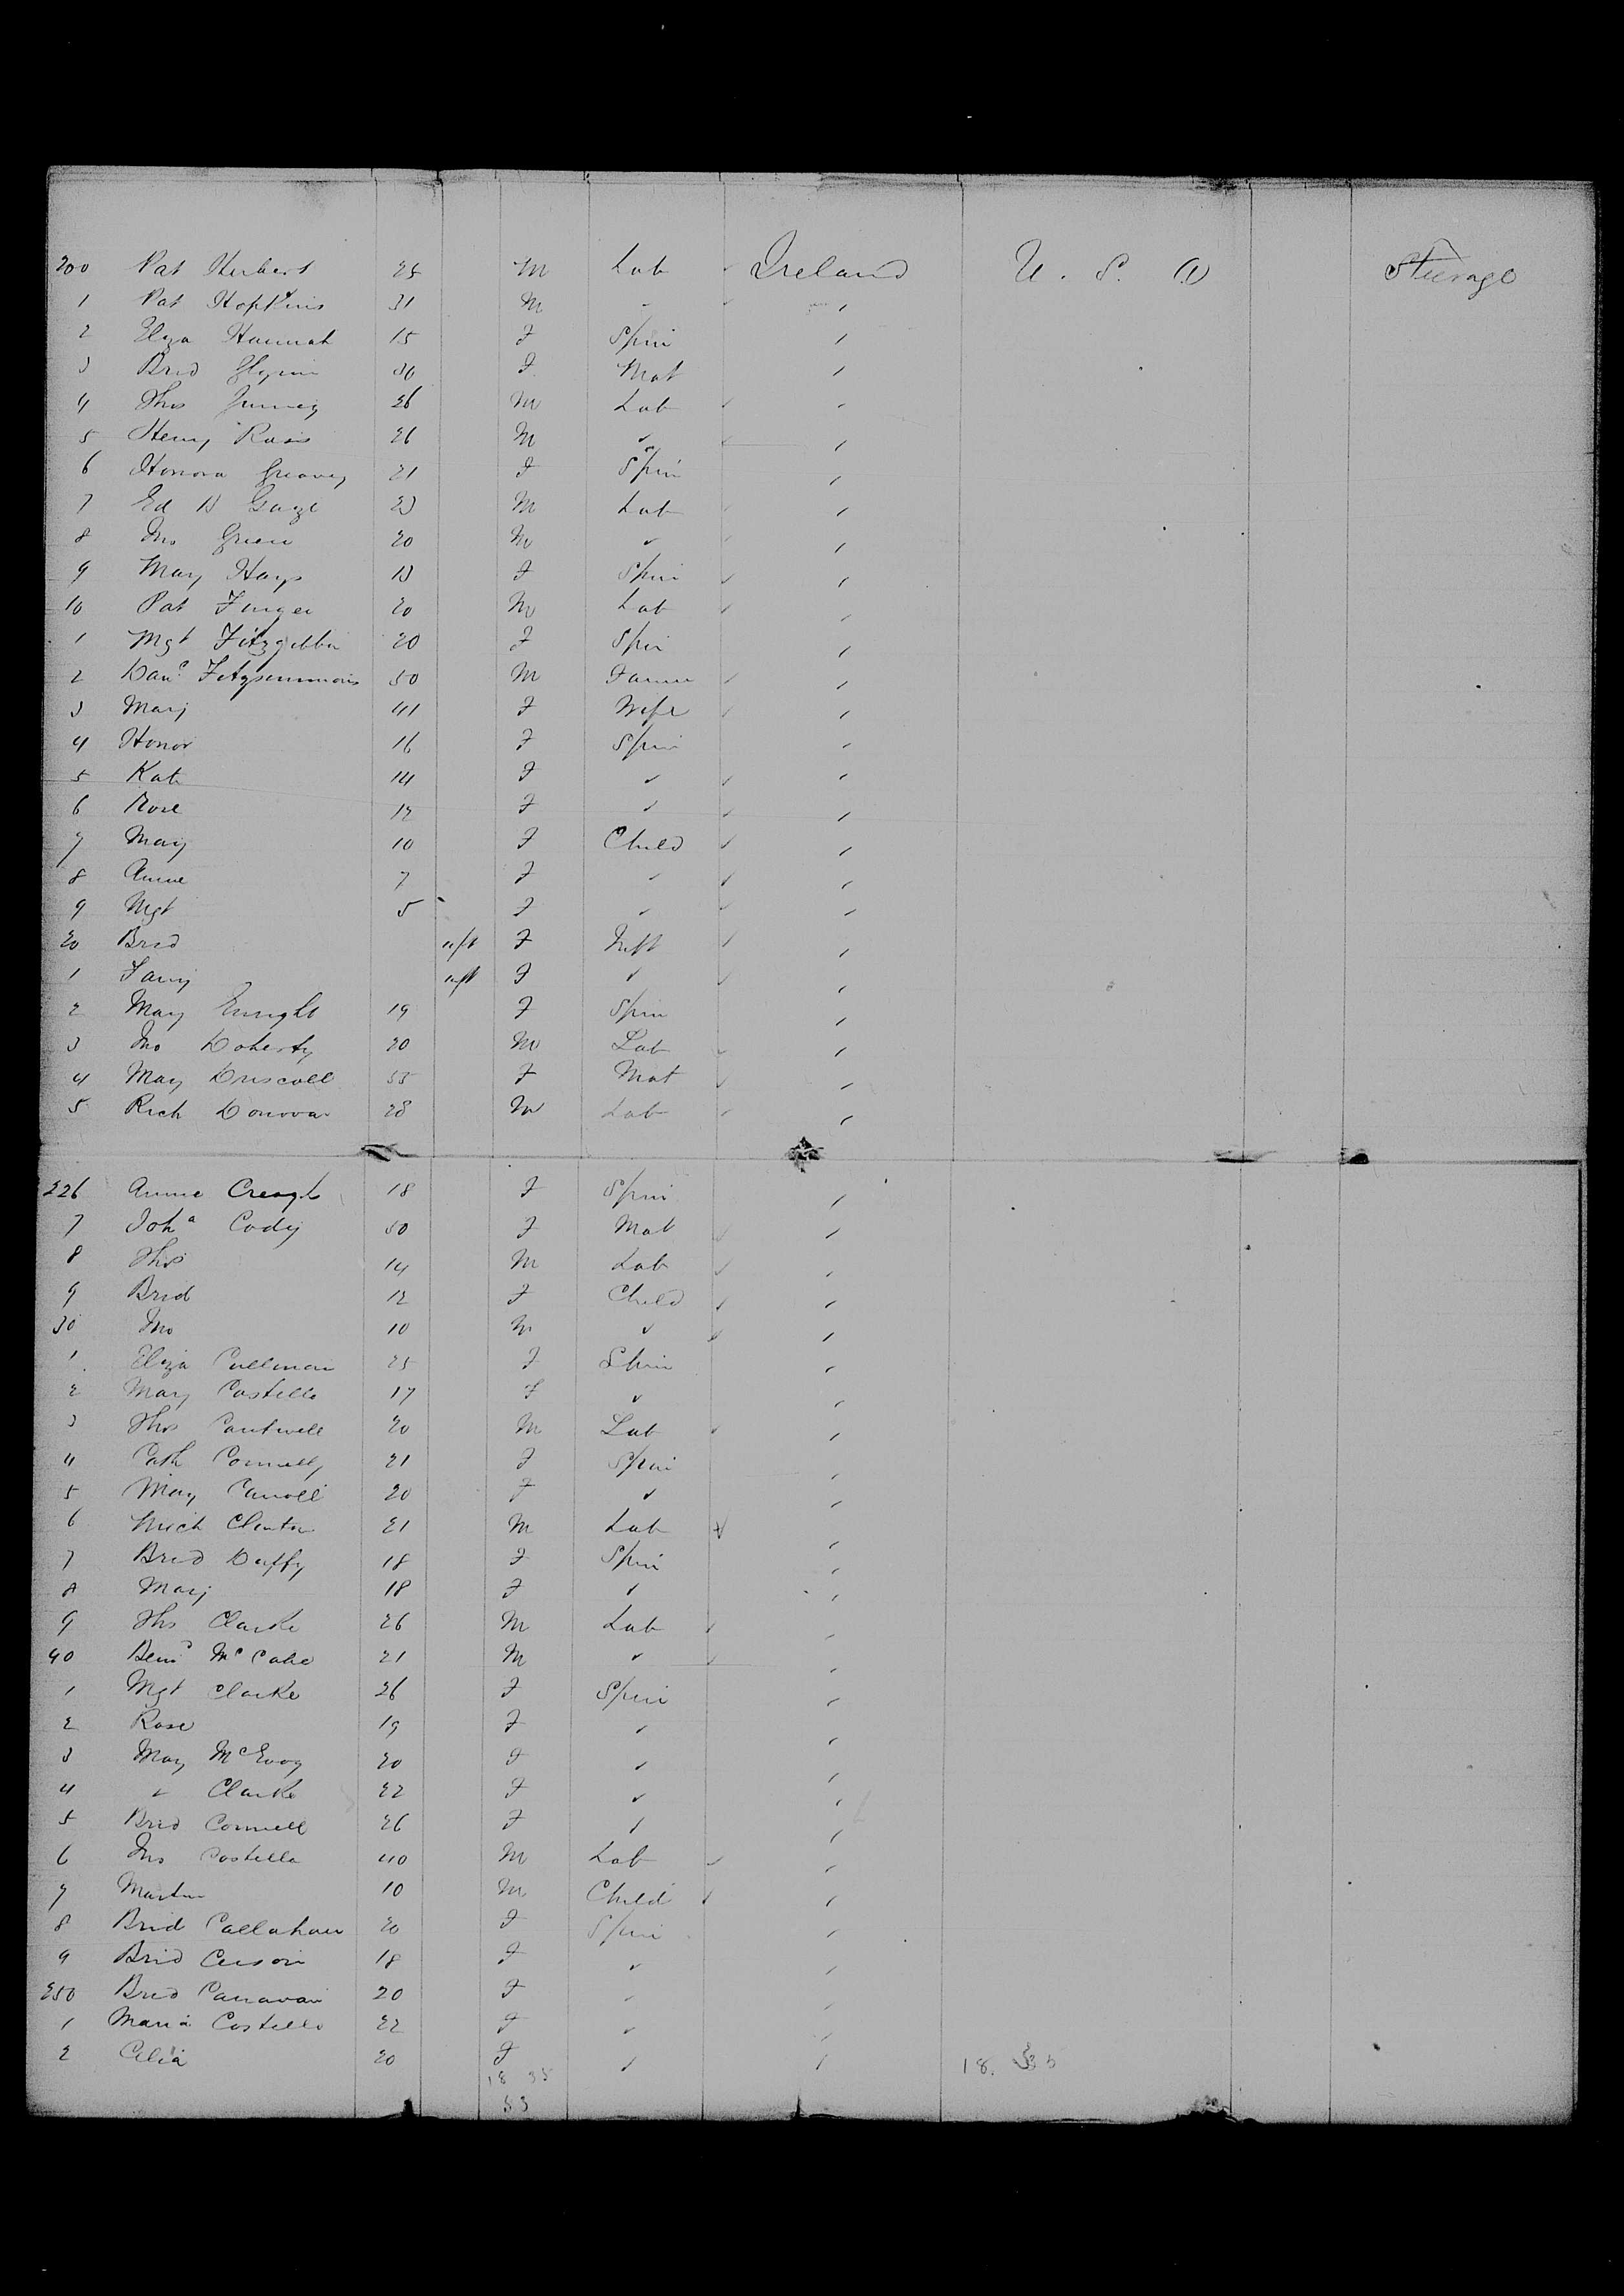 200 Pat Herbert 25 M Lab Ireland U. S. A Steerage
1 Pat Hopkins 31 M
2 Eliza Hannah 15 F Spin
3 Brid Glynn 30 F Mat
4 Thos 26 M Lab
5 Henry 26 M
6 Honora Greavey 21 F Spin
7 Ed 23 M Lab
8 Jno Green 20 M
9 Mary Hays 13 F Spin
10 Pat 20 M Lab
1 Mgt Fitzgibbon 20 F Spin
2 Fitzsimmons 50 M Farmer
3 Mary 41 F Wife
4 Honor 16 F Spin
5 Kate 14 F ✓
6 Rose 12 F ✓
7 Mary 10 F Child
8 Annie 7 F ✓
9 Mgt 5 F ✓
20 Brid inft F Inft
1 Fanny inft F ✓
2 Mary Enright 19 F Spin
3 Jno Doherty 20 M Lab
4 Mary Driscoll 55 F Mat
5 Rich Donovan 28 M Lab
226 Annie Creagh 18 F Spin
7 Joha Cody 50 F Mat
8 Thos 14 M Lab
9 Brid 12 F Child
30 Jno 10 M ✓
1 Eliza Cullinan 25 F Spin
2 Mary Costello 17 F ✓
3 Thos Cantwell 20 M Lab
4 Cath Connelly 21 F Spin
5 Mary Carroll 20 F ✓
6 Mich Clinton 21 M Lab
7 Brid Duffy 18 F Spin
8 Mary 18 F ✓
9 Thos Clarke 26 M Lab
40 McCabe 21 M ✓
1 Mgt Clarke 26 F Spin
2 Rose 19 F ✓
3 Mary McEvoy 20 F ✓
4 " Clarke 22 F ✓
5 Brid Connell 26 F ✓
6 Jno Costello 40 M Lab
7 Martin 10 M Child
8 Brid Callahan 20 F Spin
9 Brid 18 F ✓
250 Brid Canavan 20 F ✓
1 Maria Costello 22 F ✓
2 Celia 20 F ✓
18 35
53